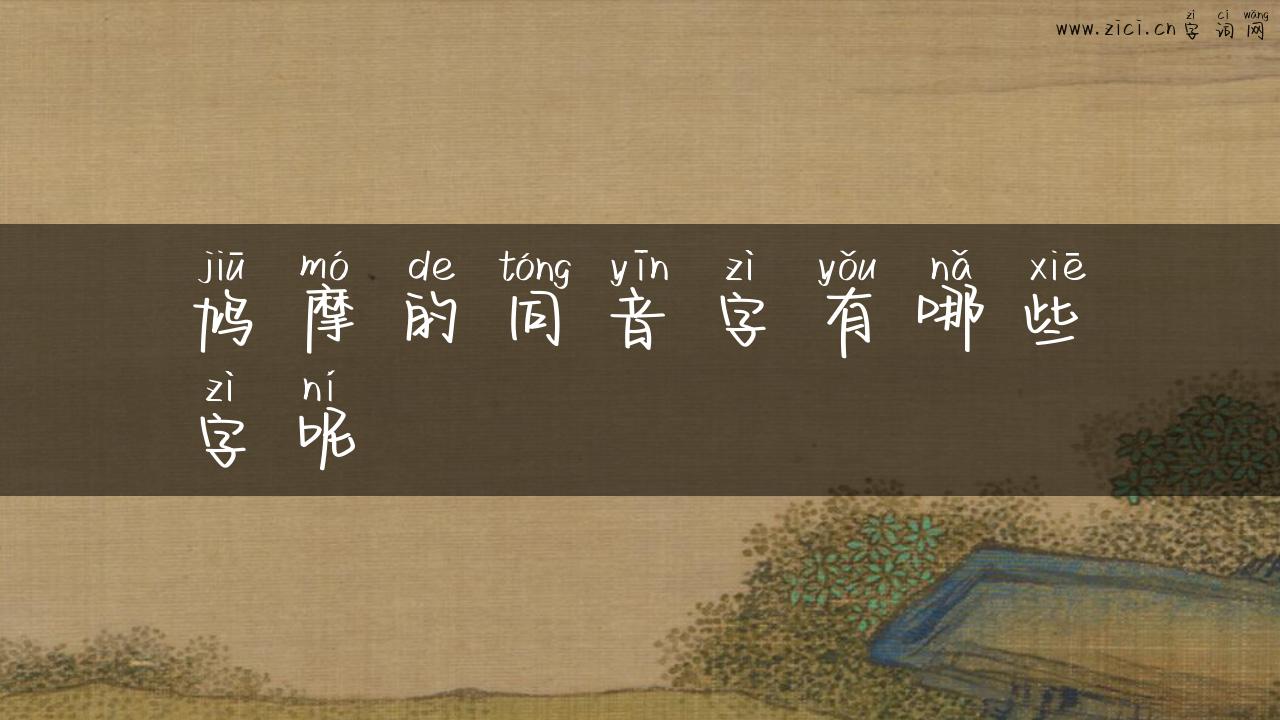 zì cí wǎng
www.zici.cn字词网
jiū mó de tóng yīn zì yǒu nǎ xiē
鸠摩的同音字有哪些
zì ní
字呢